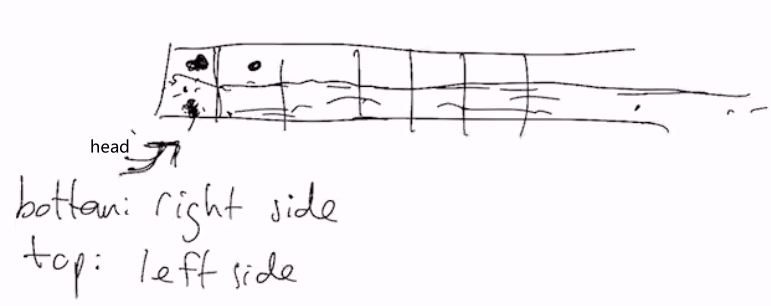 head
bottom: right side
top: left side